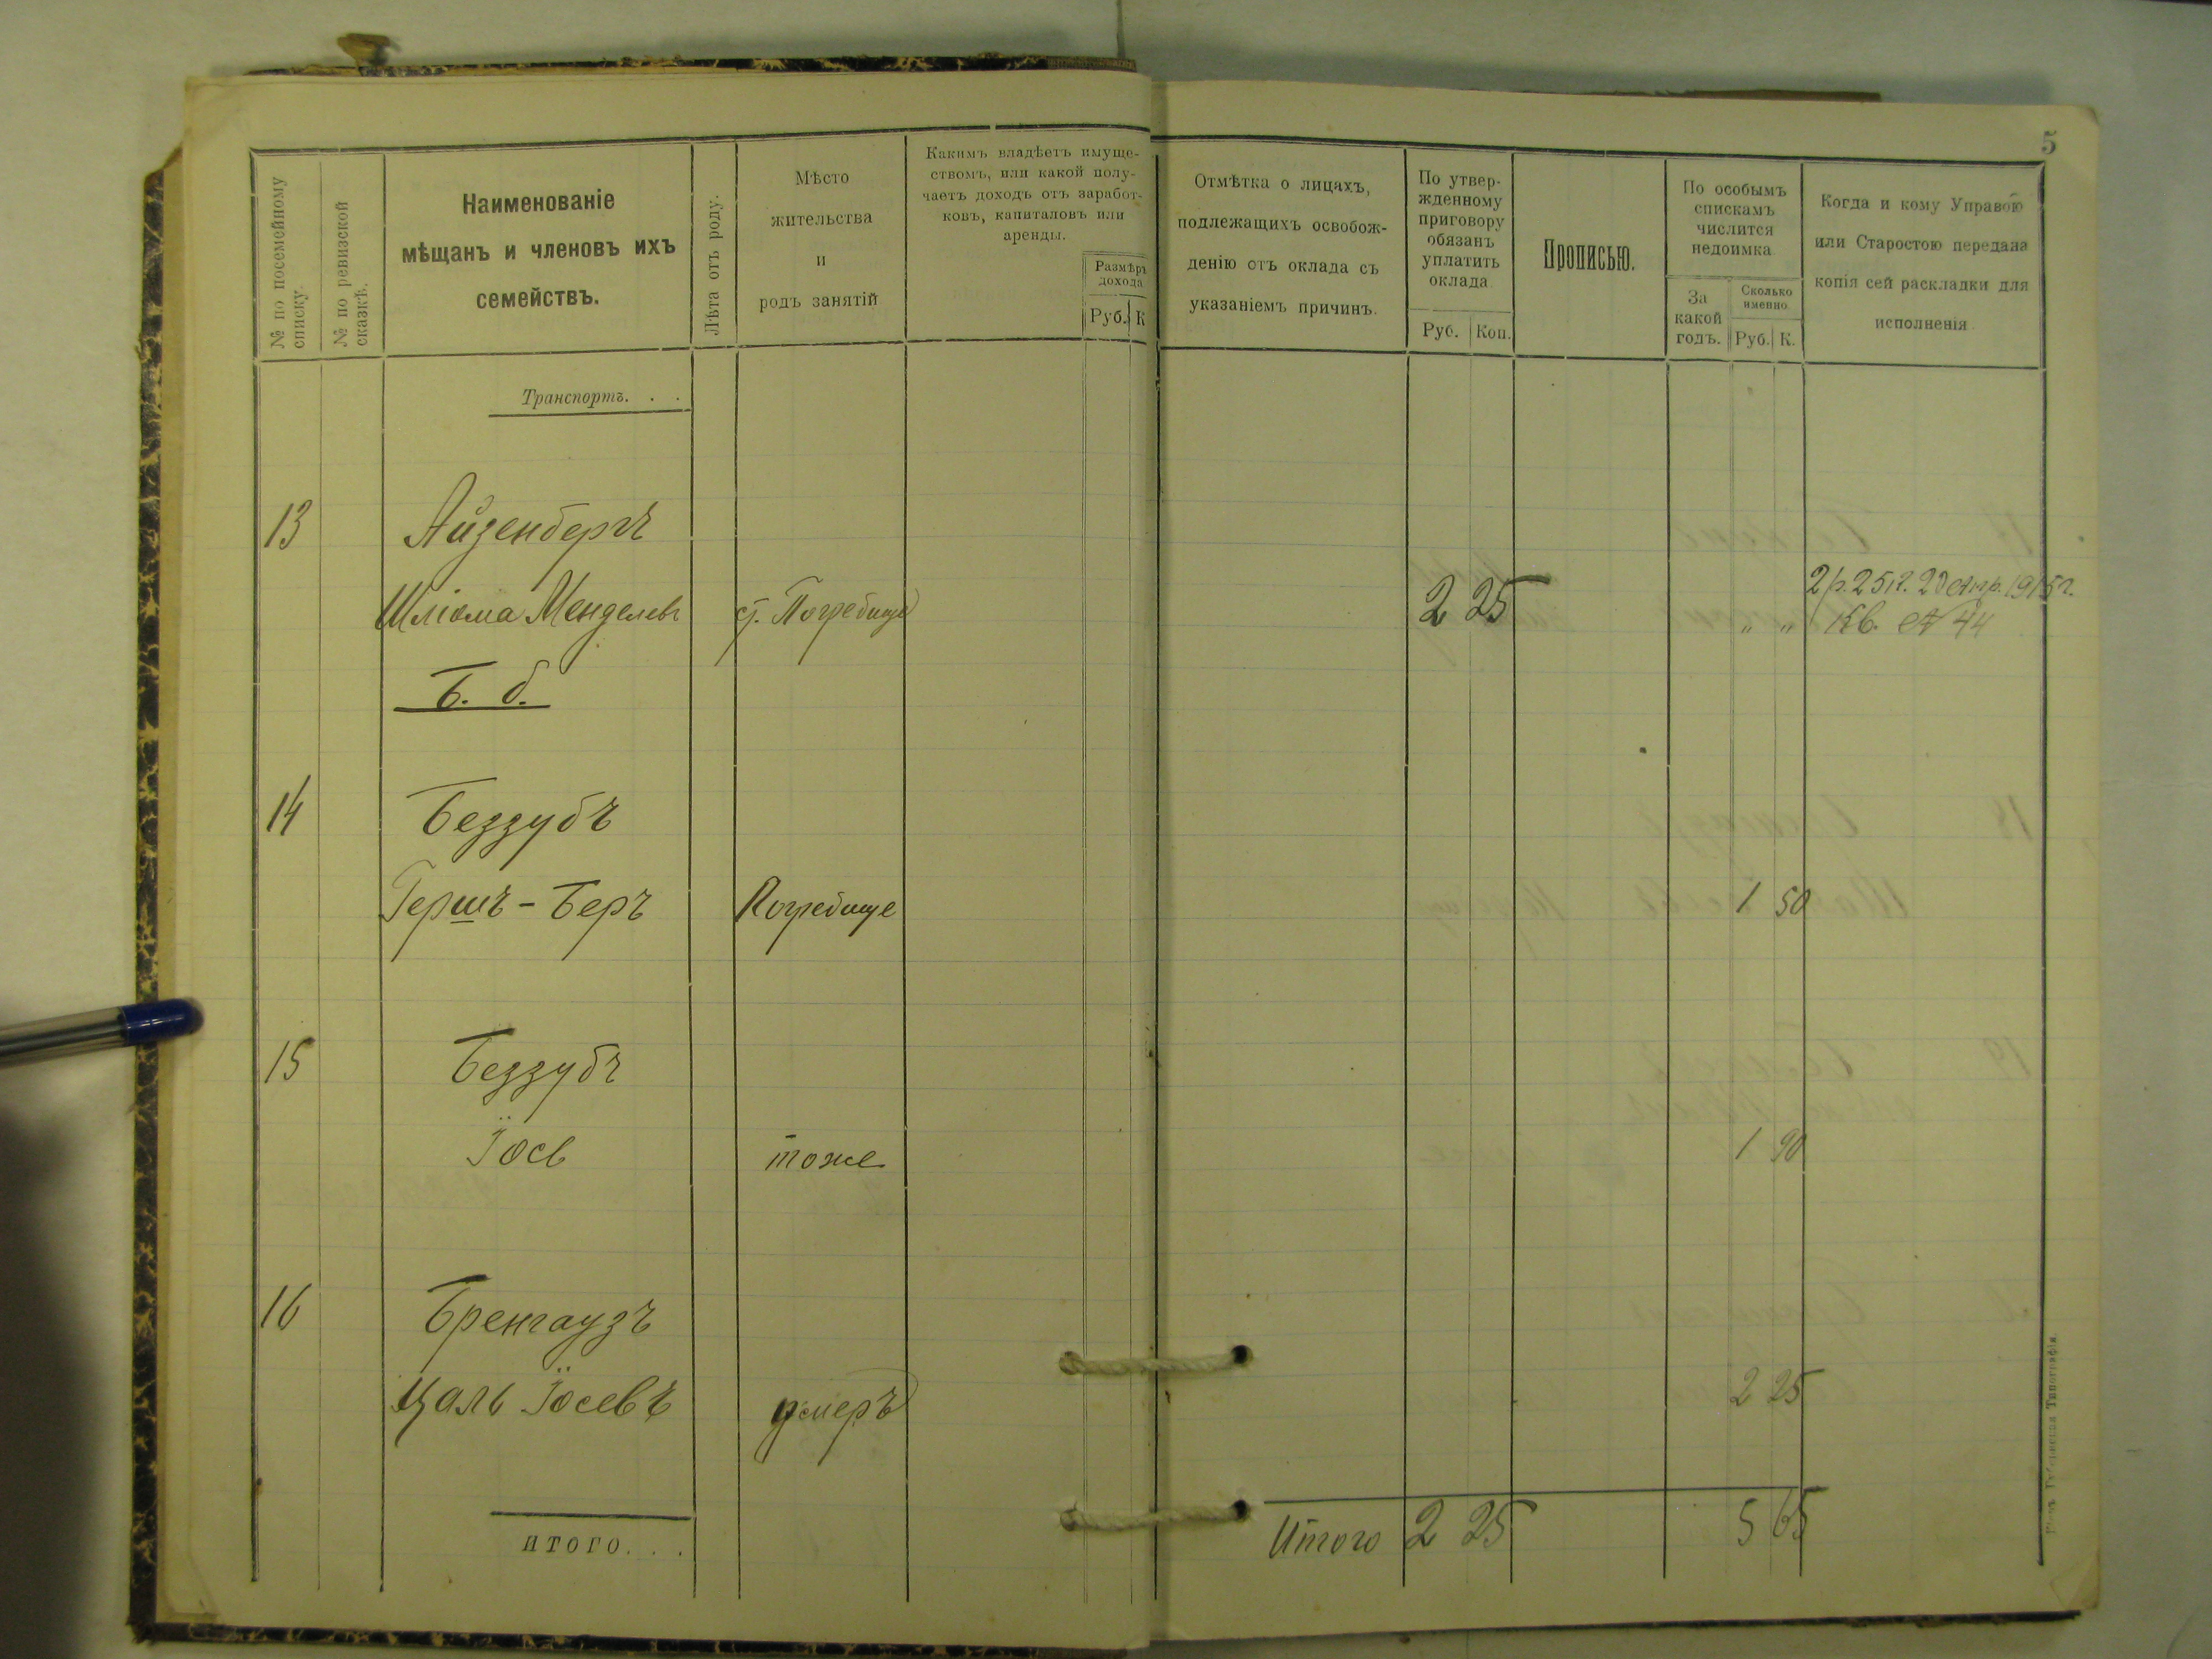 5
№ по посемейному списку.
№ по ревизской сказкѣ.
Наименованіе
мѣщанъ и членовъ ихъ
семействъ.
Лѣта отъ роду.
Мѣсто
жительства
и
родъ занятій
Какимъ владѣетъ имуще-
ствомъ, или какой полу-
чаетъ доходъ отъ заработ-
ковъ, капиталовъ или
аренды.
Размѣръ
дохода
Руб. К
Отмѣтка о лицахъ,
подлежащихъ освобож-
денію отъ оклада съ
указаніемъ причинъ.
По утвер-
жденному
приговору
обязанъ
уплатить
оклада
Руб. Коп.
Прописью.
По особымъ
спискамъ
числится
недоимка
За
какой
годъ.
Сколько
именно
Руб. К.
Когда и кому Управою
или Старостою передана
копія сей раскладки для
исполненія
Транспортъ. . .
13 Айзенбергъ
Шліома Менделевъ ст. Погребище 2 25 " " 2 р. 25 к. 20 Апр. 1915 г.
Кв. № 44
Б. б.
14 Беззубъ
Гершъ-Беръ Погребище 1 50
15 Беззубъ
Іось тоже 1 90
16 Бренгаузъ
Цаль Іосевъ умеръ 2 25
ИТОГО. . .
Итого 2 25 5 65